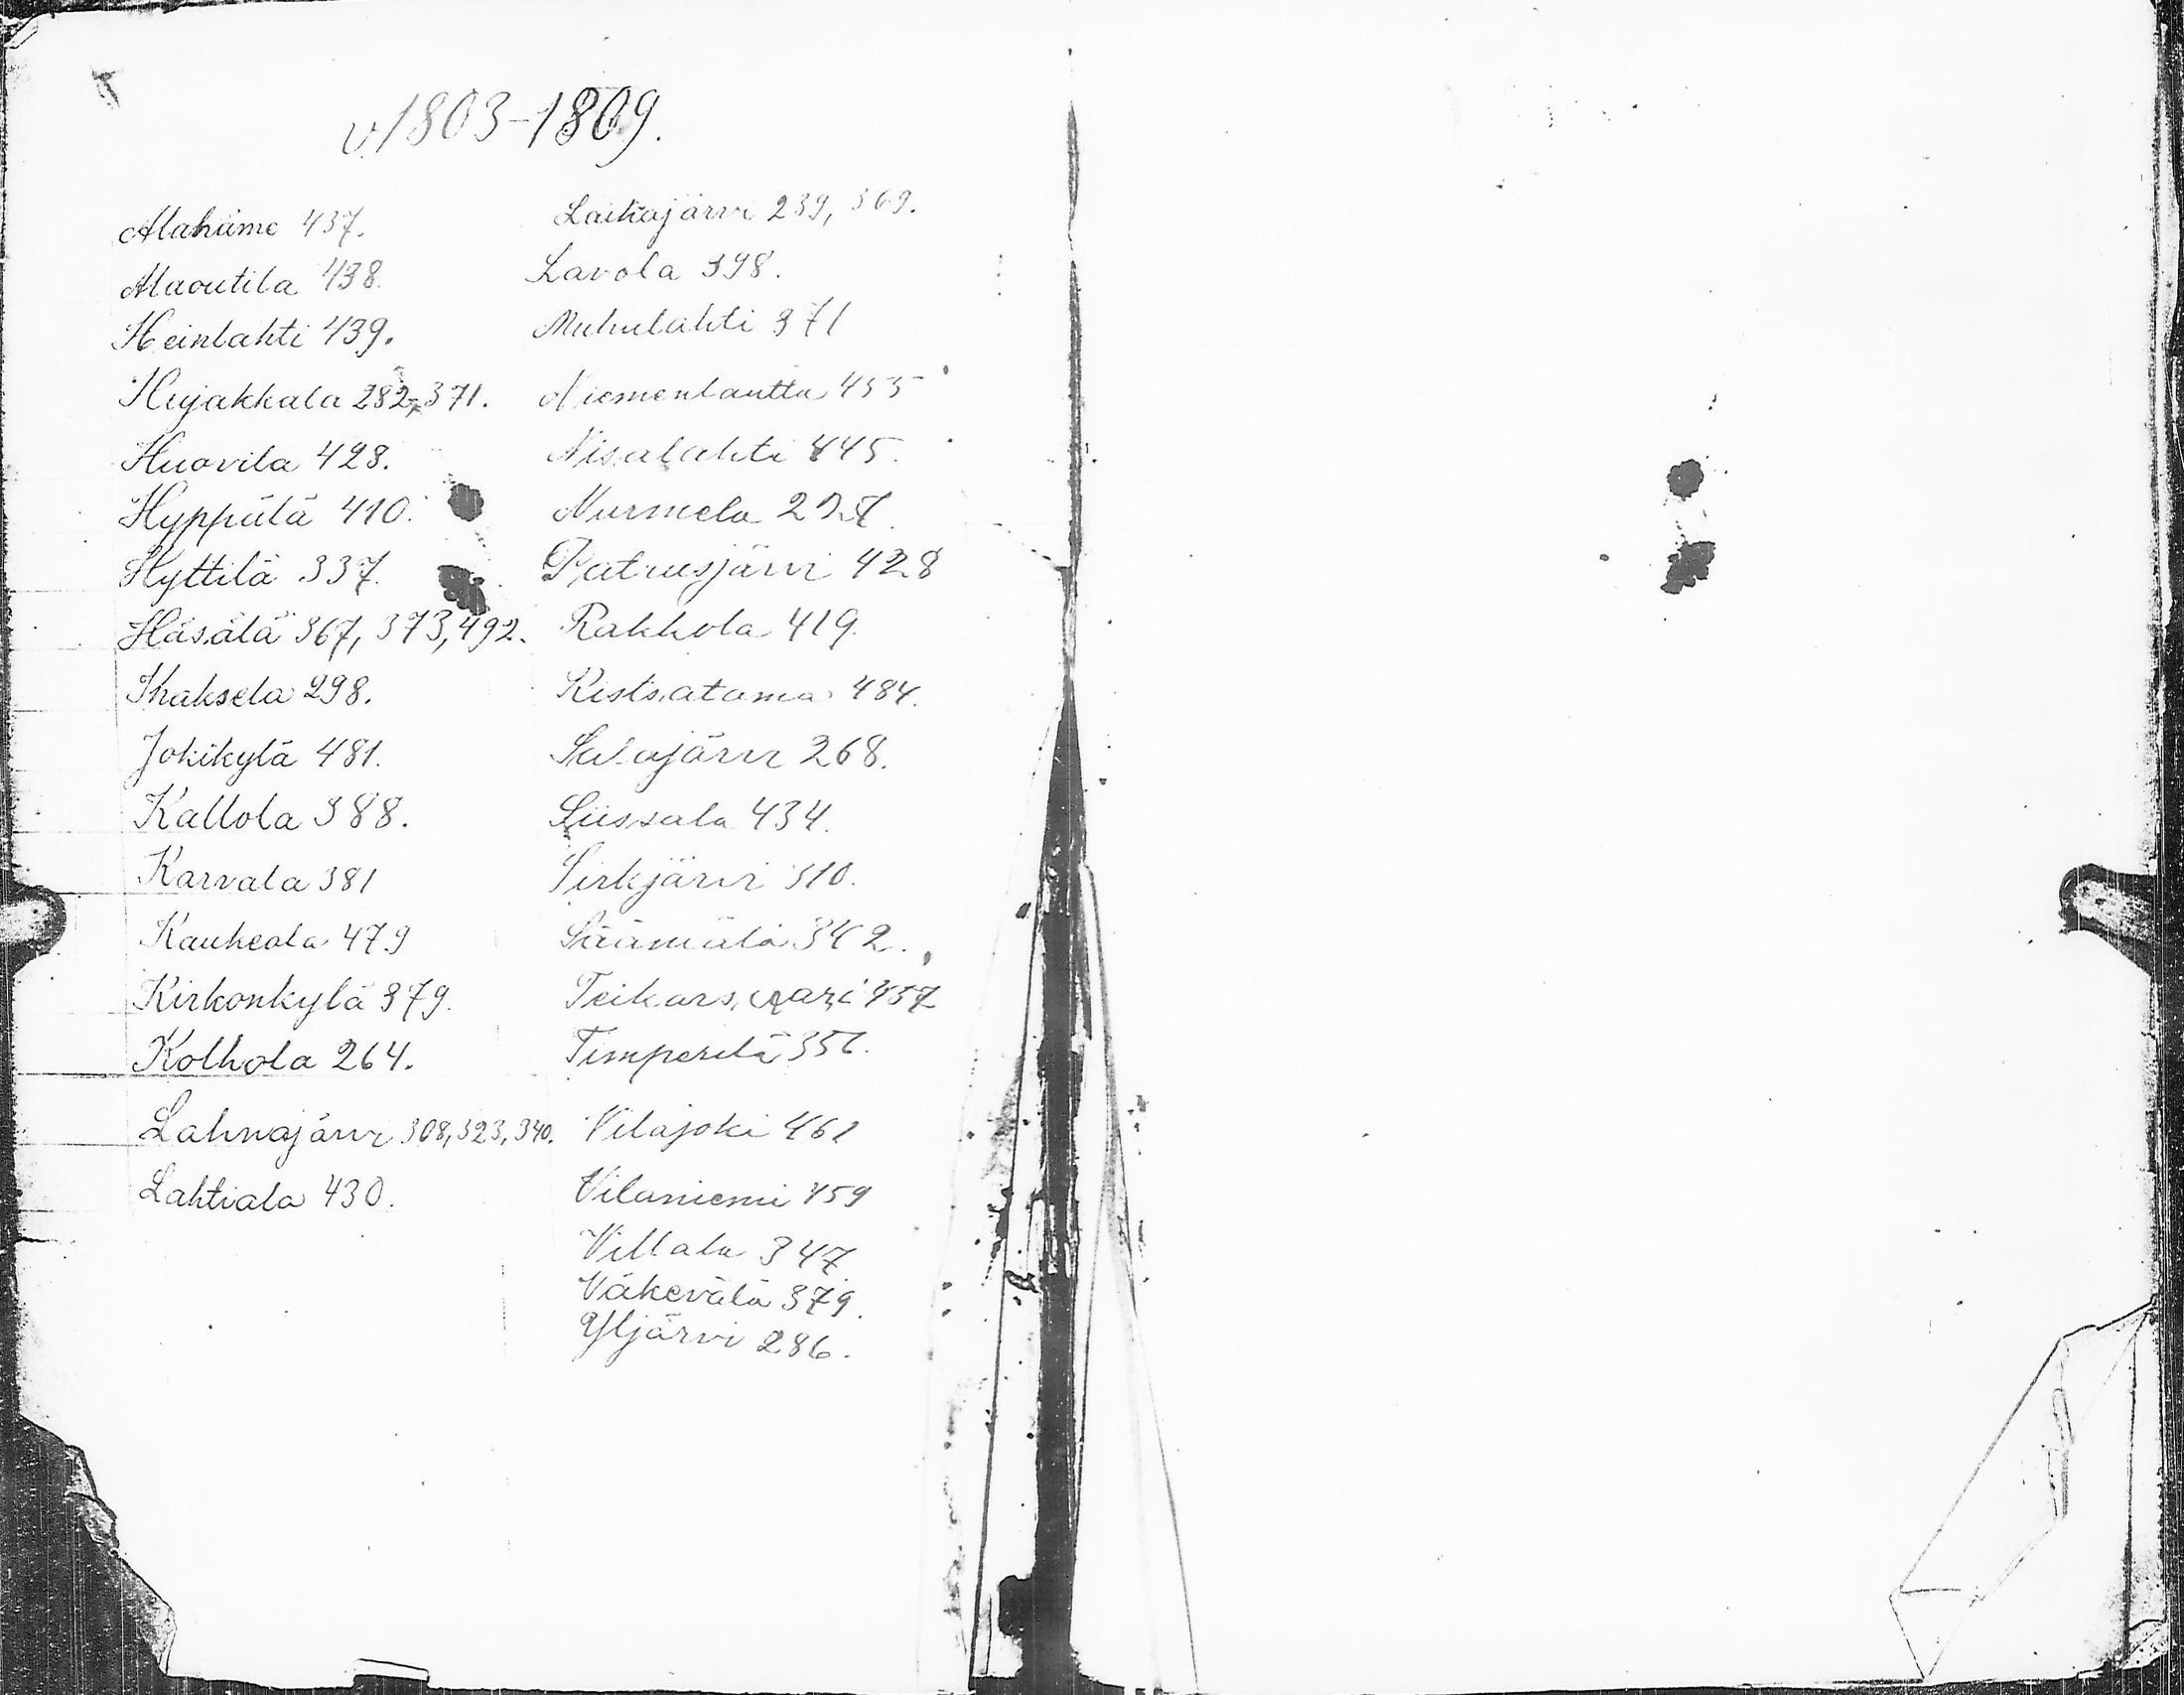 v. 1803-1809.
Alahäme 437.
Alaoutila 438.
Heinlahti 439.
Hujakkala 282, 371.
Huovila 428.
Hyppälä 410.
Hyttilä 337.
Häsälä 367, 373, 492.
Ihaksela 298.
Jokikylä 481.
Kallola 388.
Karvala 381
Kauheala 479
Kirkonkylä 379.
Kolhola 264.
Lahnajärvi 308, 323, 340.
Lahtiala 430.
Laihajärvi 239, 369.
Lavola 398.
Muhulahti 371
Niemenlautta 455
Nisalahti 445.
Nurmela
Patrusjärvi 428
Rakkola 419.
Ristsatama 484.
Salajärvi 268.
Siissala 434.
Sirkjärvi 310.
Säämälä 342.
Teikarsaari 457
Timperilä
Vilajoki 461
Vilaniemi 459
Villala 347
Väkevälä 379.
Yljärvi 286.